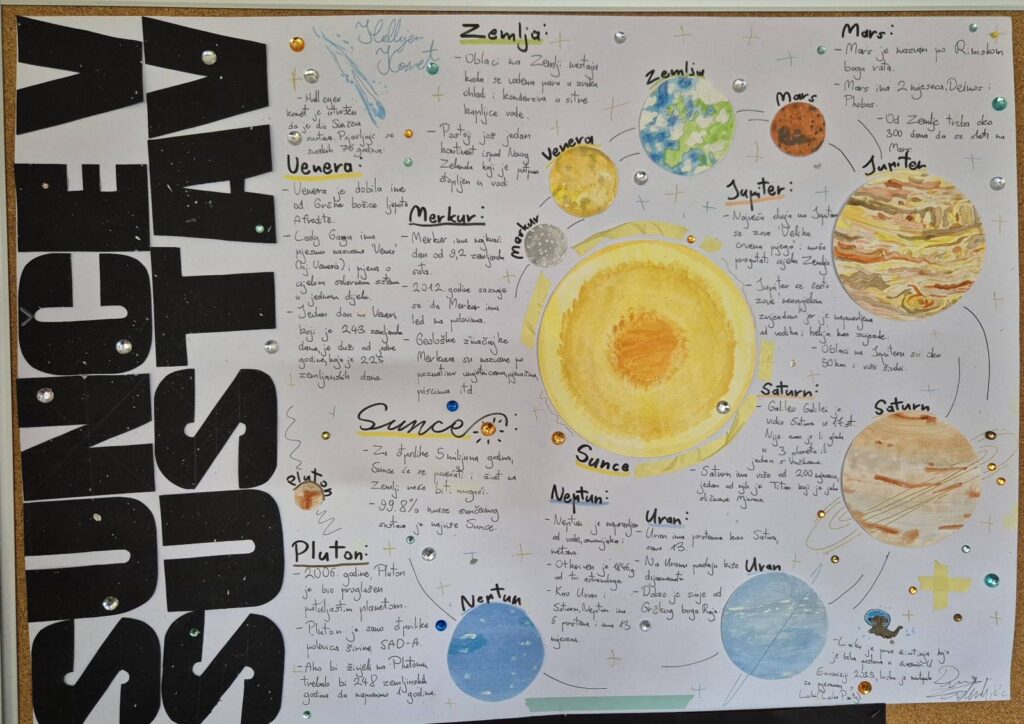 SUNČEV
SUSTAV
Hallyjev
Komet
komet je utvrđen
da je dio Sunčeva
sustava. Pojavljuje se
svakih 76 godina.
Zemlja:
- Oblaci na Zemlji nastaju
kada se vodena para u zraku
ohladi i kondenzira u sitne
kapljice vode.
- Postoji još jedan
kontinent ispod Novog
Zelanda koji je potpuno
stopljen u vodi
Mars:
- Mars je nazvan po Rimskom
bogu rata.
- Mars ima 2 mjeseca, Deimos i
Phobos.
- Od Zemlje treba oko
300 dana da se sleti na
Mars.
Zemlja
Mars
Venera
Merkur
Jupiter
Venera:
- Venera je dobila ime
od Grčke božice ljepote
Afrodite.
- Lady Gaga ima
pjesmu nazvanu 'Venus'
(hrj. Venera) i pjeva o
cijelom solarnom sistemu
u jednom dijelu.
- Jedan dan na Veneri
koji je 243 zemljanska
dana, je duži od jedne
godine, koja je 225
zemljanskih dana.
Merkur:
- Merkur ima najkraći
dan od 9,2 zemljanska
sata.
- 2012. godine saznaje
se da Merkur ima
led na polovima.
- Geološke značajke
Merkura su nazvane po
poznatim umjetnicima, pjevačima,
piscima itd.
Jupiter:
- Najveća oluja na Jupiteru
se zove 'Velika
crvena pjega' i može
progutati cijelu Zemlju.
- Jupiter se često
zove neuspjelom
zvijezdom jer je napravljena
od vodika i helija kao zvijezde.
- Oblaci na Jupiteru su oko
50km i više široki.
Saturn:
- Galileo Galilei je
vidio Saturn u 17.st.
u 3 planeta ili
jedan s ručkama.
- Saturn ima više od 200 mjeseca,
jedan od njih je Titan koji je jako
Saturn
Sunce:
- Za otprilike 5 milijuna godina,
Sunce će se povećati i život na
Zemlji neće biti moguć.
- 99,8% mase sunčevog
sustava je najviše Sunce.
Sunce
Pluton
Pluton:
- 2006. godine, Pluton
je bio proglašen
patuljastim planetom.
- Pluton je samo otprilike
polovica širine SAD-A.
- Ako bi živjeli na Plutonu,
trebalo bi 248 zemljinskih
godina da napunimo 1 godinu.
Neptun:
- Neptun je napravljen
od vode, amonijaka i
metana.
- Otkriven je 1846.g.
od tri astronauga.
- Kao Uran i
Saturn, Neptun ima
6 prstena i ima 13
mjeseca.
Uran:
- Uran ima prstena kao Saturn,
samo 13.
- Na Uranu padaju kiše
dijamanata.
- Dobio je svoje od
Grčkog boga Neba.
Neptun
Uran
- Laika je prva životinja koja
je bila poslana u svemir. U